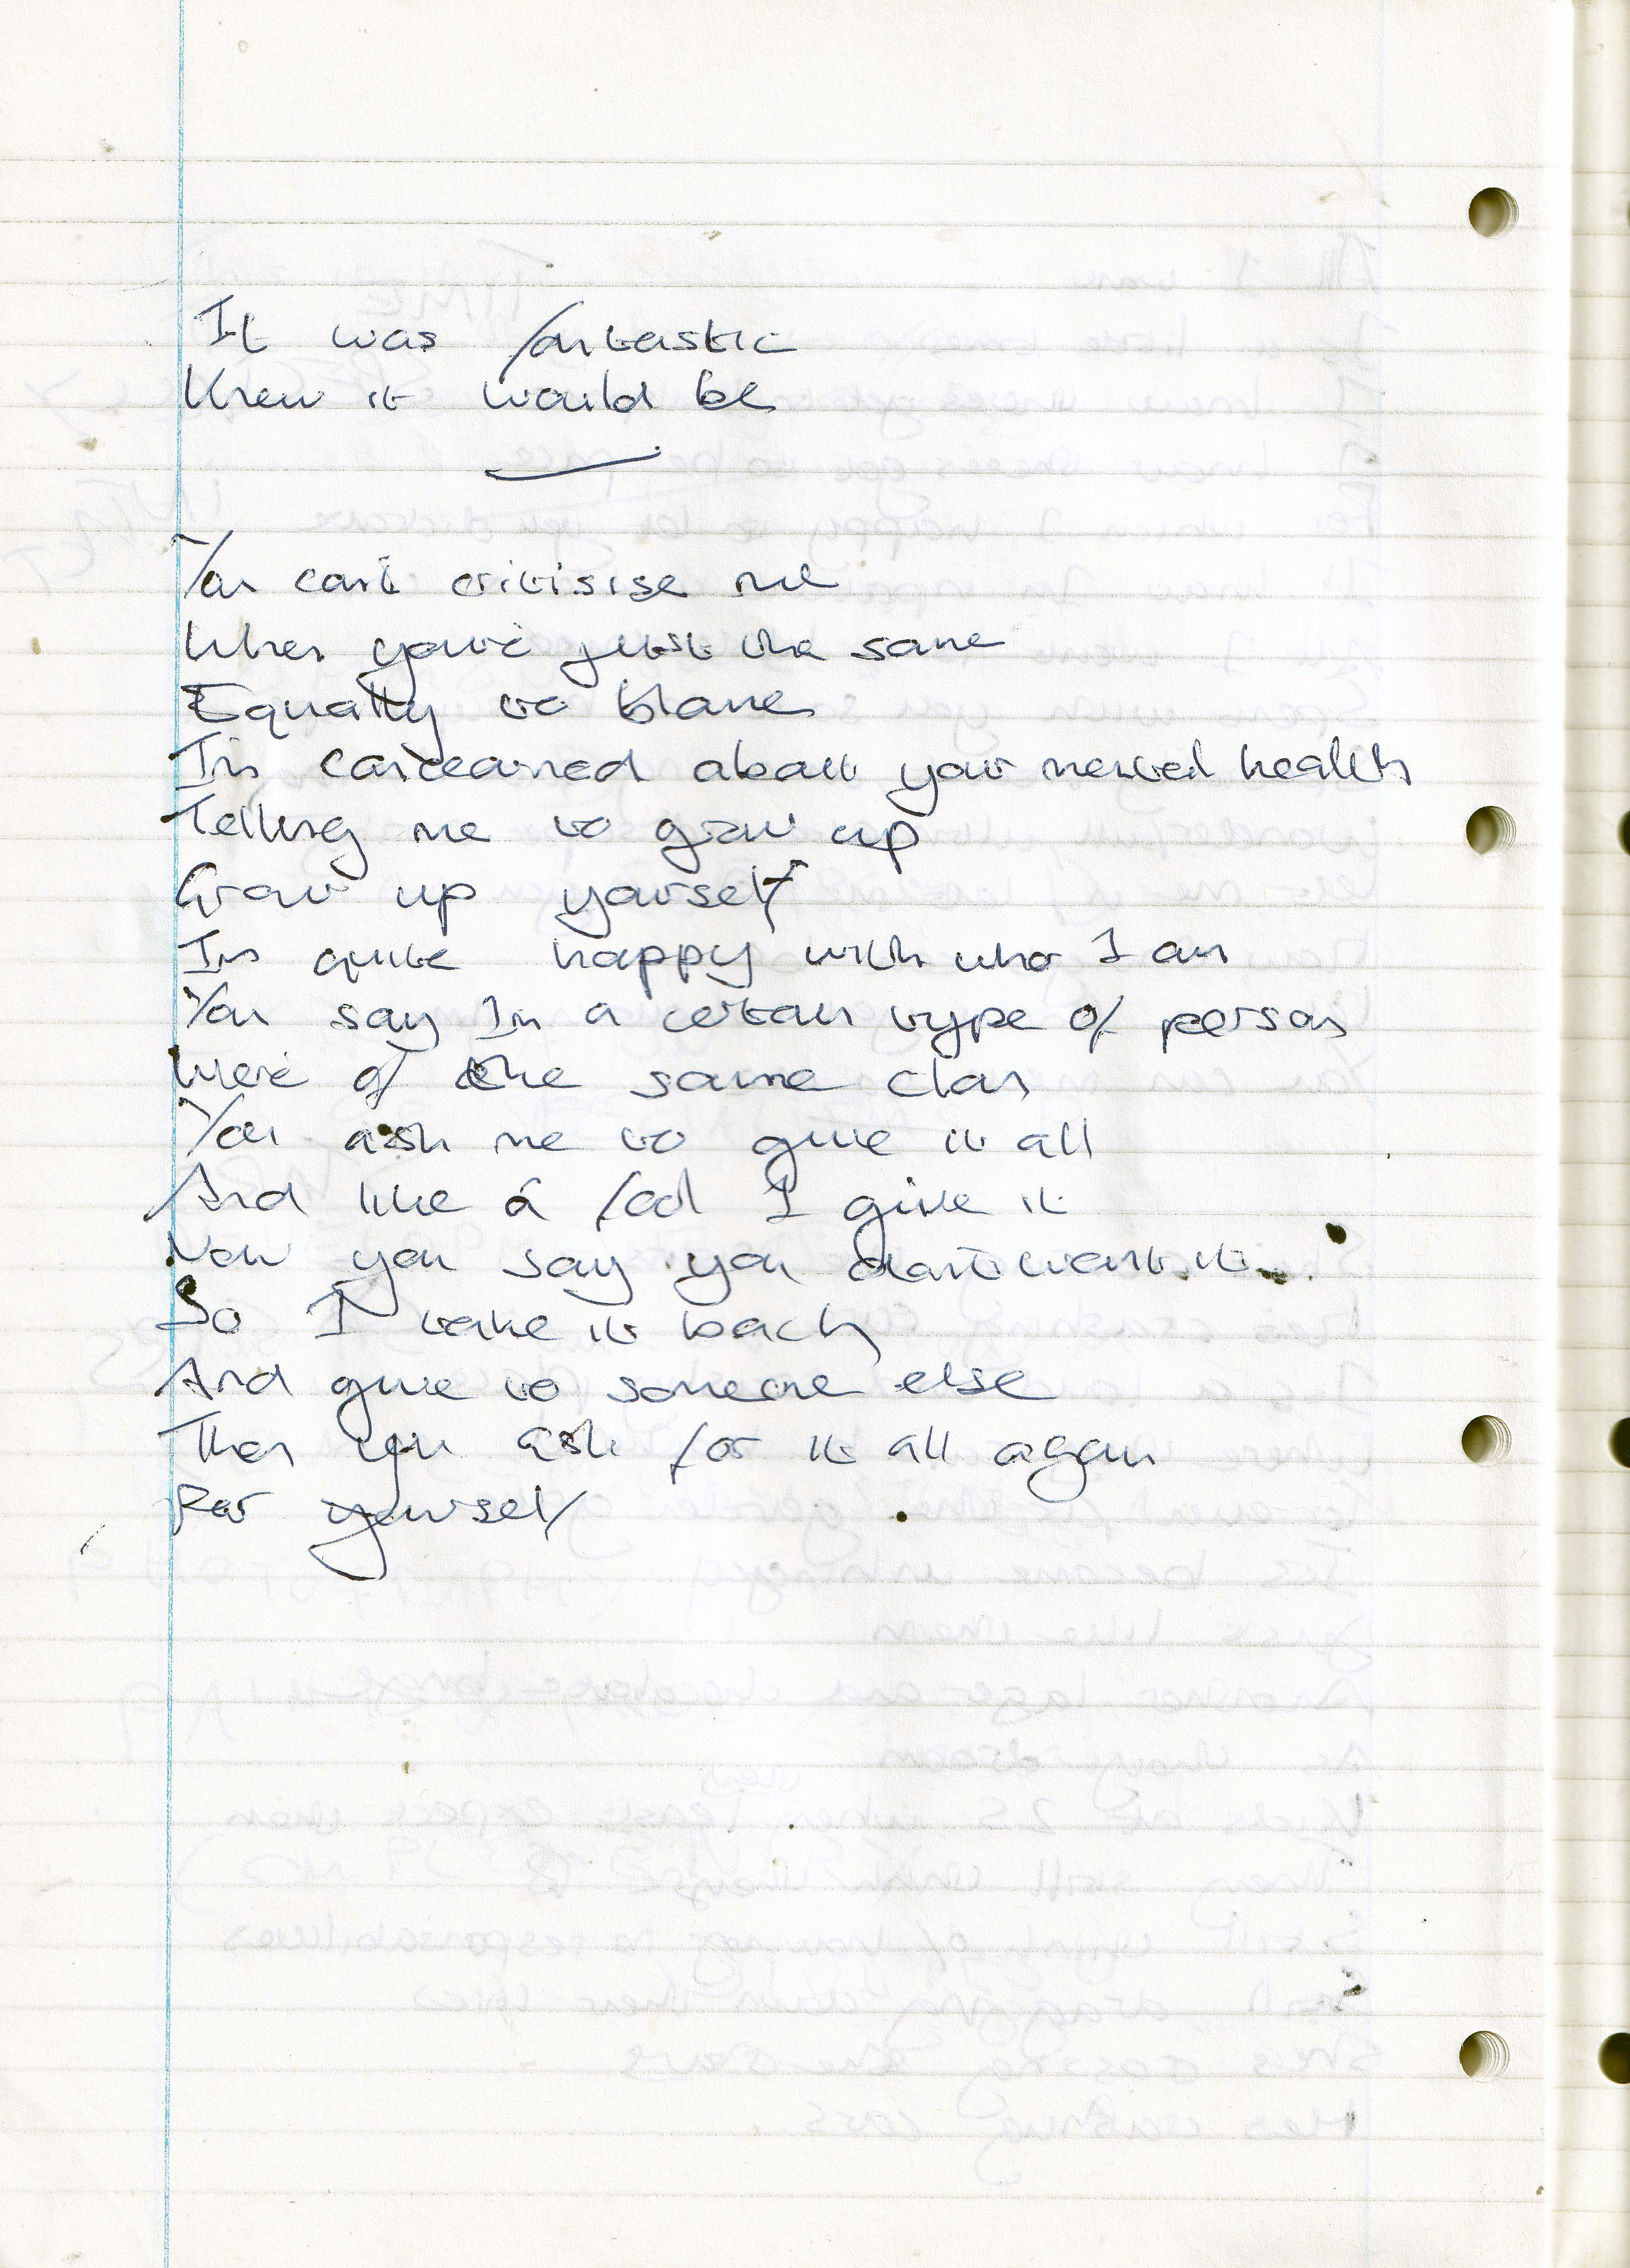 It was fantastic
Knew it would be
You can't critisise me
When your'e just the same
Equally to blame
Im concearned about your mental health
Telling me to grow up
Grow up yourself
Im quite happy with who I am
You say Im a certain type of person
We're of the same clan
You ask me to give it all
And like a fool I give it
Now you say you don't want it
So I take it back
And give to someone else
Then you ask for it all again
For yourself